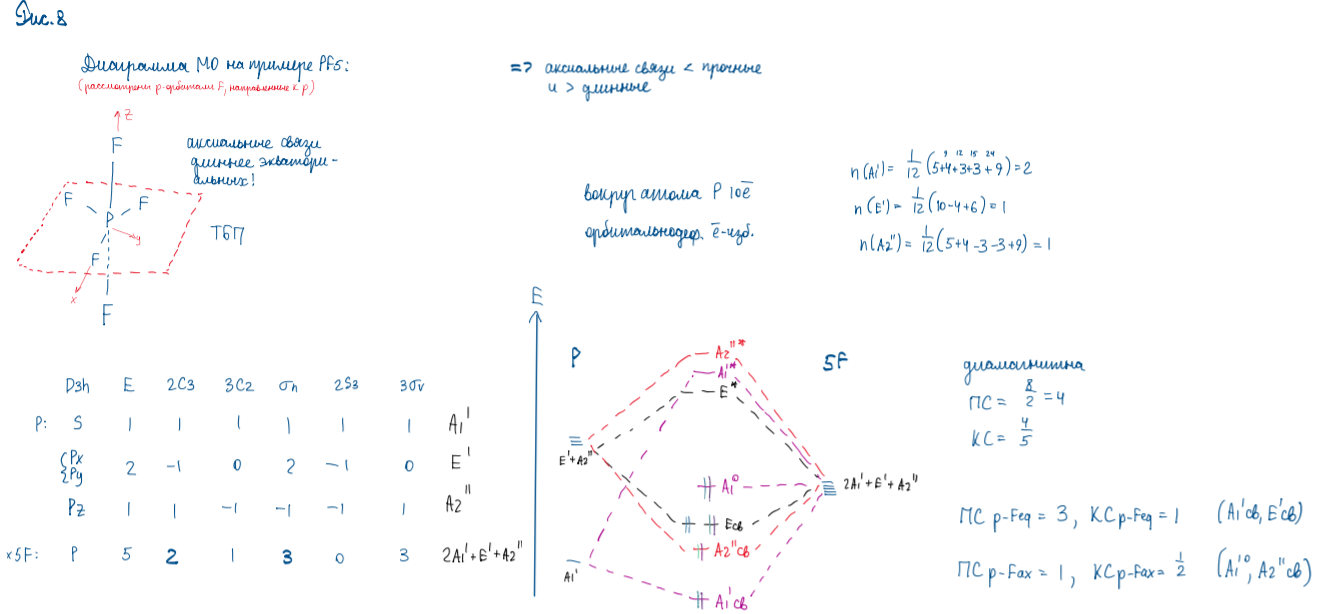 Рис. 8
Диаграмма МО на примере PF5:
(рассмотрены р-орбитали F, направленные к P)
z
F
F
F
P
y
F
x
F
аксиальные связи
длиннее экватори-
альных!
ТБП
=> аксиальные связи < прочные
и > длинные
вокруг атома P 10ē
орбитальнодеф. ē-изб.
9 12 15 24
n(A1') = 1/12 (5+4+3+3+9) = 2
n(E') = 1/12 (10-4+6) = 1
n(A2'') = 1/12 (5+4-3-3+9) = 1
D3h E 2C3 3C2 σh 2S3 3σv
P: S 1 1 1 1 1 1 A1'
{Px
{Py 2 -1 0 2 -1 0 E'
Pz 1 1 -1 -1 -1 1 A2''
x5F: P 5 2 1 3 0 3 2A1'+E'+A2''
E
P
5F
A2''*
A1'*
E*
E'+A2''
A1⁰
2A1'+E'+A2''
Eсв
A2''св
A1'
A1'св
диамагнитна
ПС = 8/2 = 4
КС = 4/5
ПС p-Feq = 3, КС p-Feq = 1 (A1'св, E'св)
ПС p-Fax = 1, КС p-Fax = 1/2 (A1'⁰, A2''св)